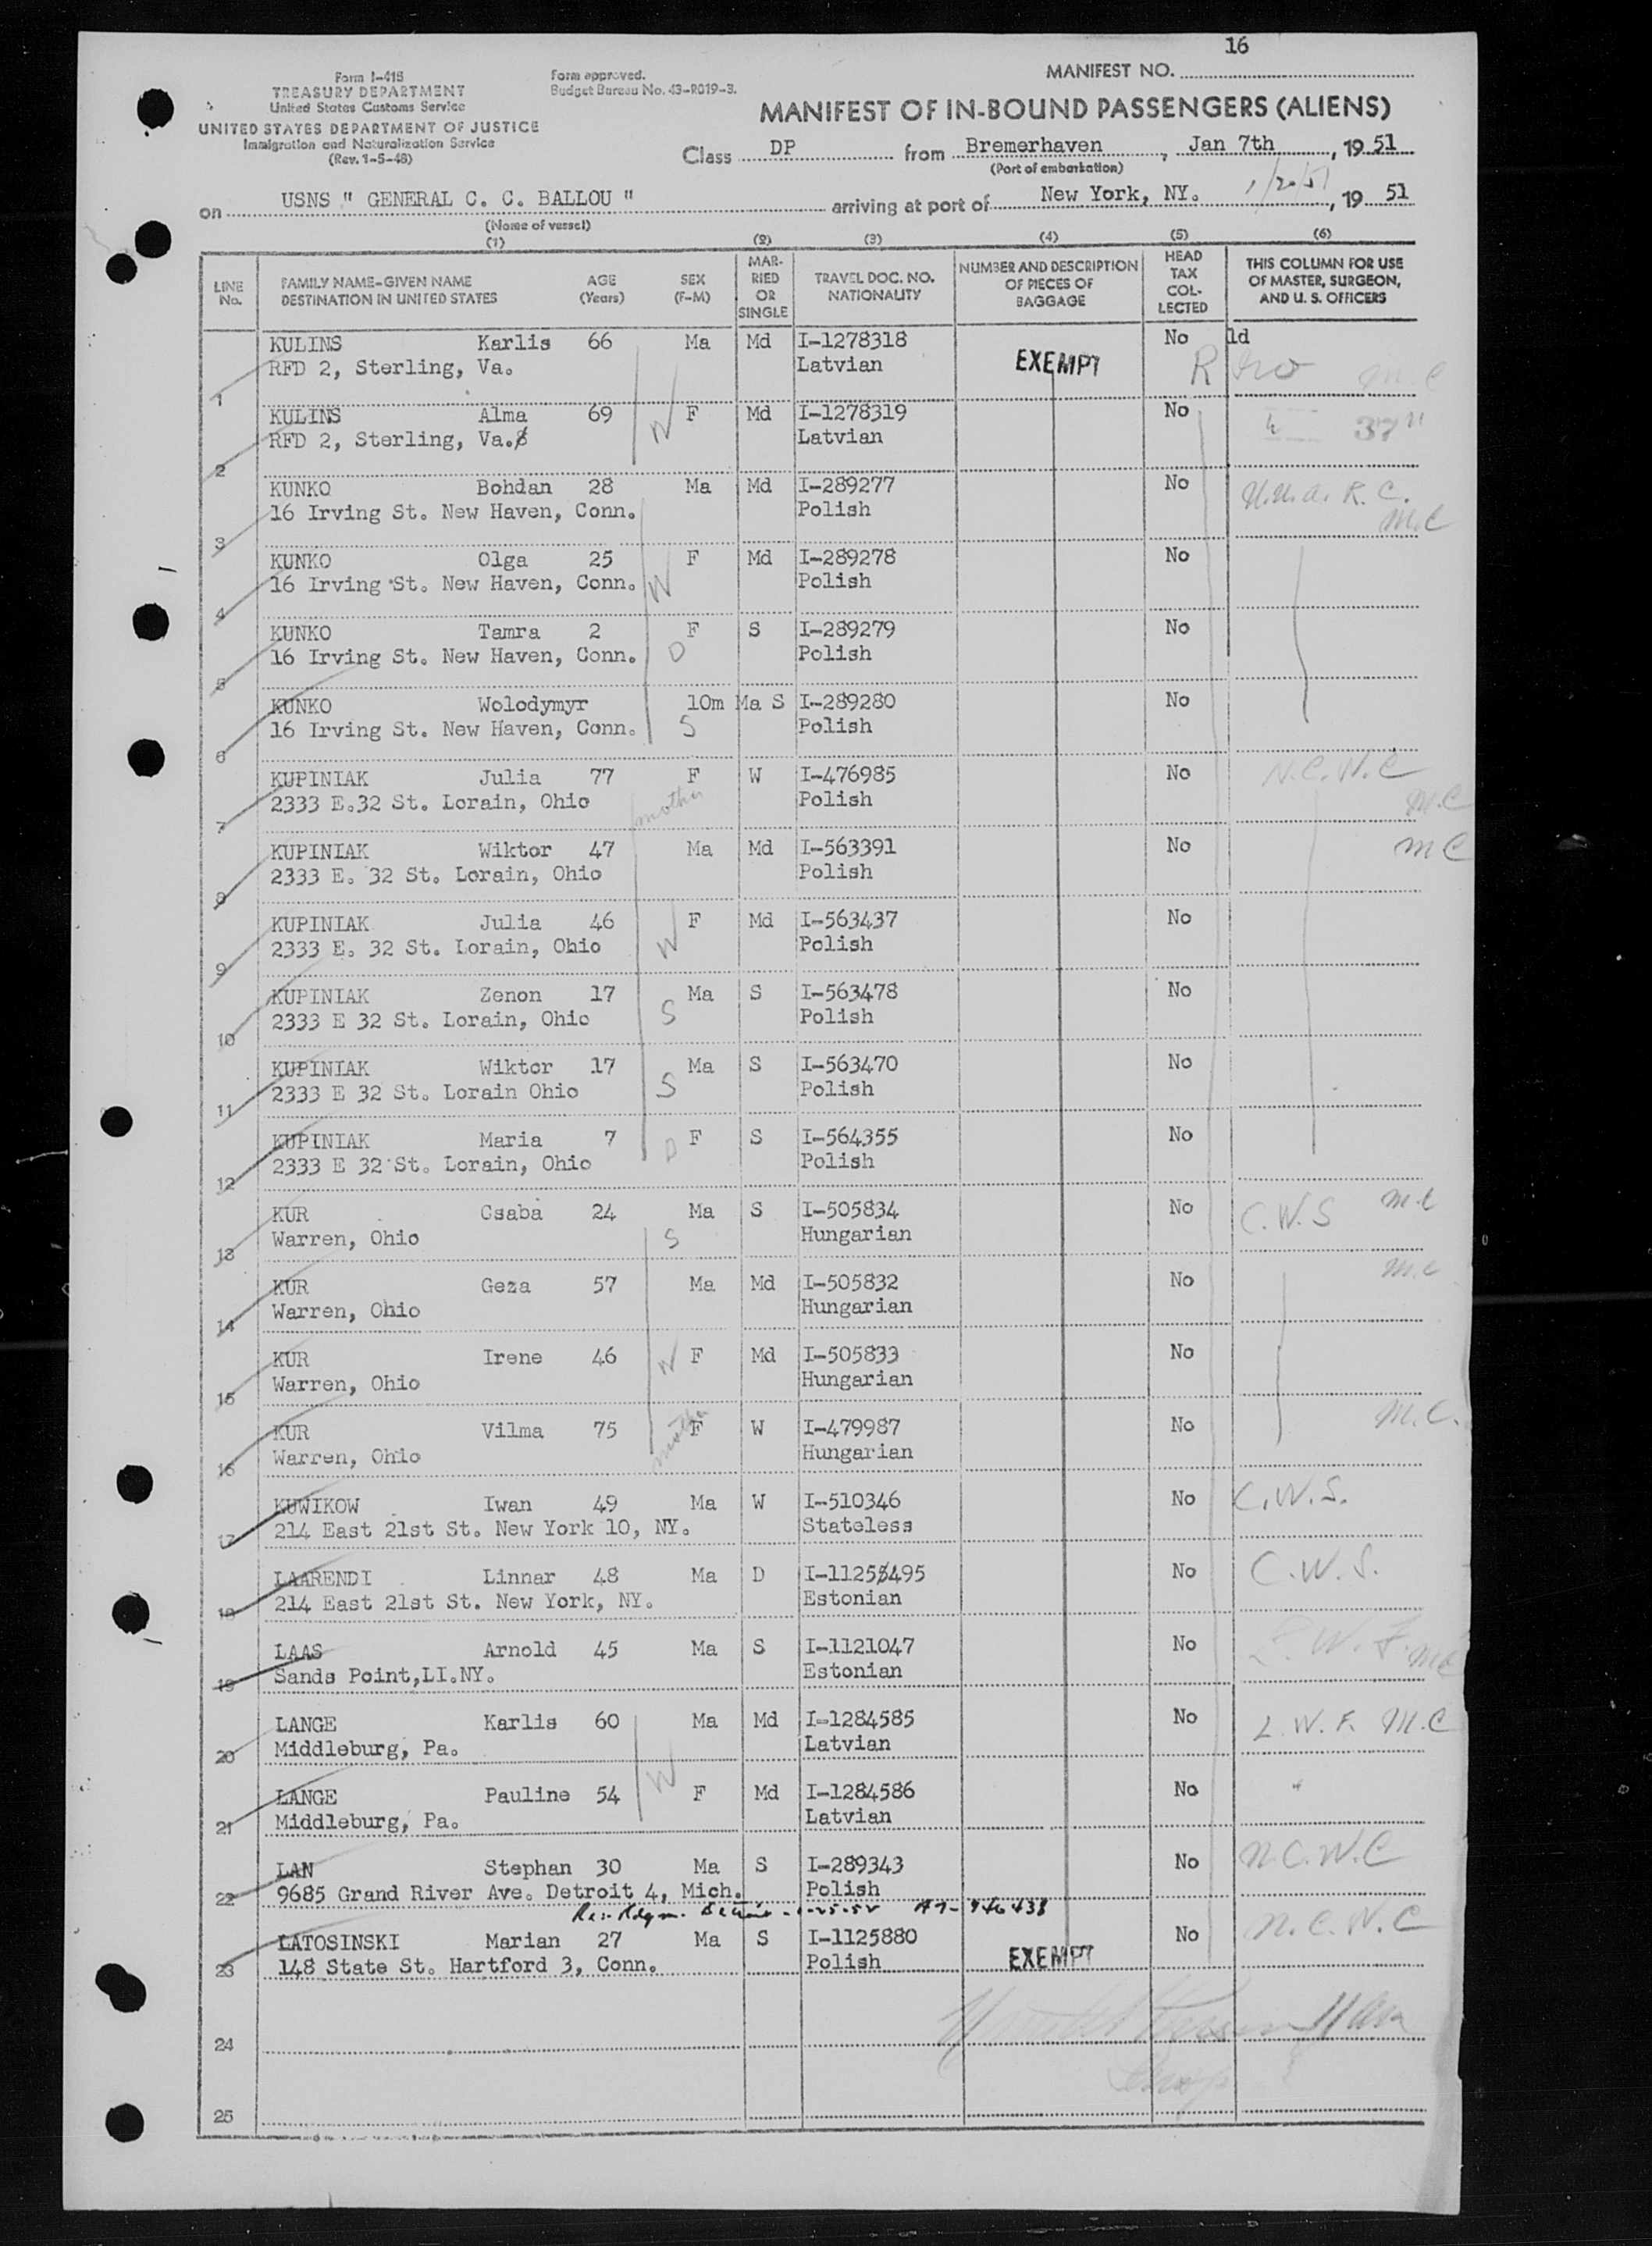 16
Form I-415
TREASURY DEPARTMENT
United States Customs Service
UNITED STATES DEPARTMENT OF JUSTICE
Immigration and Naturalization Service
(Rev. 1-5-48)
Form approved.
Budget Bureau No. 43-R019-3.
MANIFEST NO.
MANIFEST OF IN-BOUND PASSENGERS (ALIENS)
Class DP from Bremerhaven, Jan 7th, 1951
(Port of embarkation)
on USNS " GENERAL C. C. BALLOU " arriving at port of New York, NY. 1/20/51, 19 51
(Name of vessel)
(1) (2) (3) (4) (5) (6)
LINE No. FAMILY NAME-GIVEN NAME DESTINATION IN UNITED STATES AGE (Years) SEX (F-M) MARRIED OR SINGLE TRAVEL DOC. NO. NATIONALITY NUMBER AND DESCRIPTION OF PIECES OF BAGGAGE HEAD TAX COLLECTED THIS COLUMN FOR USE OF MASTER, SURGEON, AND U. S. OFFICERS
KULINS Karlis 66 Ma Md I-1278318 No ld
1 RFD 2, Sterling, Va. Latvian EXEMPT R M C
KULINS Alma 69 F Md I-1278319 No
2 RFD 2, Sterling, Va. W Latvian 37"
KUNKO Bohdan 28 Ma Md I-289277 No U.U.A.R.C.
3 16 Irving St. New Haven, Conn. Polish M.C
KUNKO Olga 25 F Md I-289278 No
4 16 Irving St. New Haven, Conn. W Polish
KUNKO Tamra 2 F S I-289279 No
5 16 Irving St. New Haven, Conn. D Polish
KUNKO Wolodymyr 10m Ma S I-289280 No
6 16 Irving St. New Haven, Conn. S Polish
KUPINIAK Julia 77 F W I-476985 No N.C.W.C
7 2333 E.32 St. Lorain, Ohio mother Polish M.C
KUPINIAK Wiktor 47 Ma Md I-563391 No M C
8 2333 E. 32 St. Lorain, Ohio Polish
KUPINIAK Julia 46 F Md I-563437 No
9 2333 E. 32 St. Lorain, Ohio W Polish
KUPINIAK Zenon 17 Ma S I-563478 No
10 2333 E 32 St. Lorain, Ohio S Polish
KUPINIAK Wiktor 17 Ma S I-563470 No
11 2333 E 32 St. Lorain Ohio S Polish
KUPINIAK Maria 7 F S I-564355 No
12 2333 E 32 St. Lorain, Ohio D Polish
KUR Csaba 24 Ma S I-505834 No C.W.S M.C
13 Warren, Ohio S Hungarian
KUR Geza 57 Ma Md I-505832 No M.C
14 Warren, Ohio Hungarian
KUR Irene 46 W F Md I-505833 No
15 Warren, Ohio Hungarian
KUR Vilma 75 F W I-479987 No M.C.
16 Warren, Ohio mother Hungarian
KUWIKOW Iwan 49 Ma W I-510346 No C.W.S.
17 214 East 21st St. New York 10, NY. Stateless
LAARENDI Linnar 48 Ma D I-1125495 No C.W.S.
18 214 East 21st St. New York, NY. Estonian
LAAS Arnold 45 Ma S I-1121047 No L.W.F. MC
19 Sands Point,LI.NY. Estonian
LANGE Karlis 60 Ma Md I-1284585 No L.W.F. M.C
20 Middleburg, Pa. Latvian
LANGE Pauline 54 W F Md I-1284586 No "
21 Middleburg, Pa. Latvian
LAN Stephan 30 Ma S I-289343 No N.C.W.C
22 9685 Grand River Ave. Detroit 4, Mich. Polish
LATOSINSKI Marian 27 Ma S I-1125880 No N.C.W.C
23 148 State St. Hartford 3, Conn. Polish EXEMPT
24
25